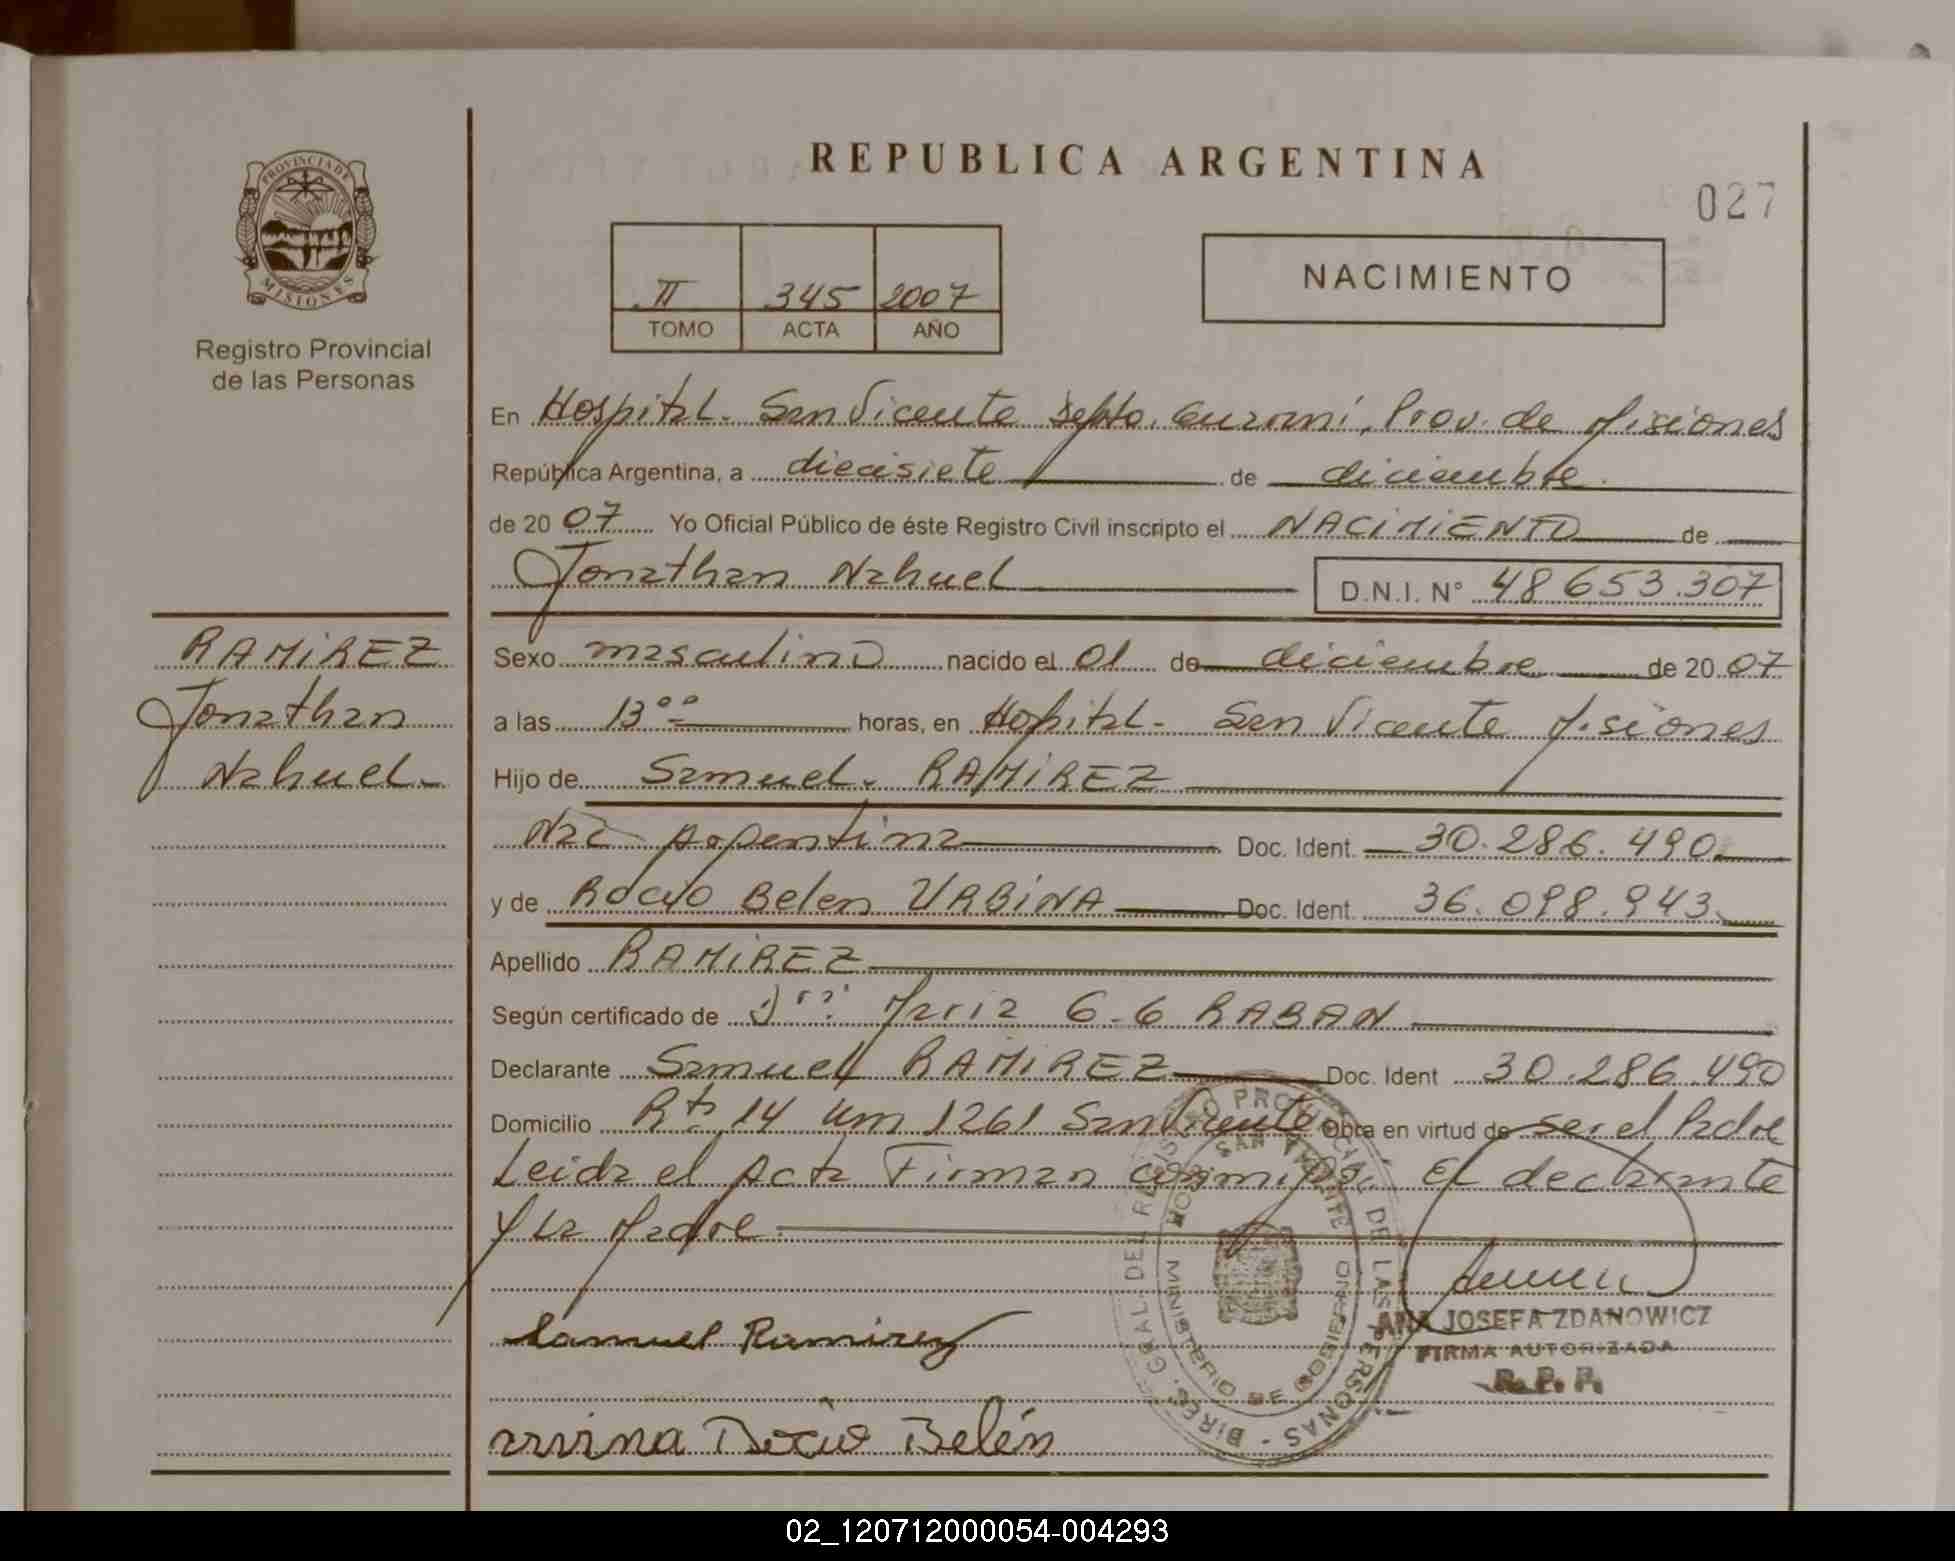 REPUBLICA ARGENTINA
027
PROVINCIA DE
MISIONES
Registro Provincial
de las Personas
II 345 2007
TOMO ACTA AÑO
NACIMIENTO
En Hospital. San Vicente Depto. Guaraní, Prov. de Misiones
República Argentina, a diecisiete de diciembre
de 2007 Yo Oficial Público de éste Registro Civil inscripto el NACIMIENTO de
Jonathan Nahuel D.N.I. N° 48653.307
RAMIREZ
Jonathan
Nahuel.-
Sexo masculino nacido el 01 de diciembre de 2007
a las 13°° horas, en Hospital- San Vicente Misiones
Hijo de Samuel. RAMIREZ
Nac Argentina Doc. Ident. 30.286.490
y de Rocio Belen URBINA Doc. Ident. 36.098.943
Apellido RAMIREZ
Según certificado de Maria RABAN
Declarante Samuel RAMIREZ Doc. Ident 30.286.490
Domicilio Rta 14 Km 1261 San Vicente Obra en virtud de ser el Padre
Leida el Acta Firman conmigo: El declarante
y la Madre.
Samuel Ramirez
Rocio Belén
DIREC. GRAL. DEL REGISTRO PROVINCIAL DE LAS PERSONAS
HOSP. SAN VICENTE
MINISTERIO DE GOBIERNO
ANA JOSEFA ZDANOWICZ
FIRMA AUTORIZADA
R. P. P.
02_120712000054-004293